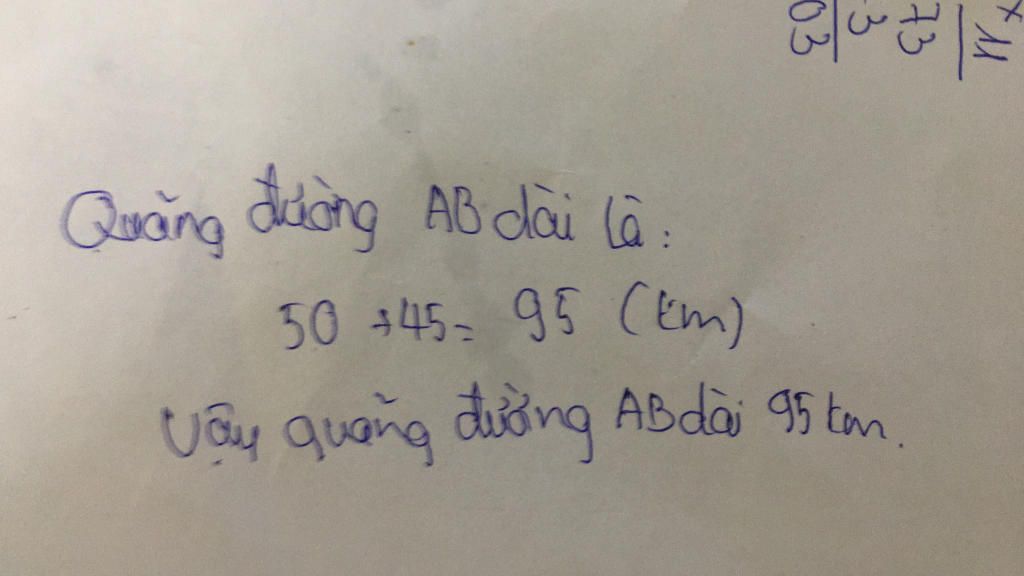 Quãng đường AB dài là:
50 + 45 = 95 (km)
Vậy quãng đường AB dài 95 km.
× 11
73
3
03